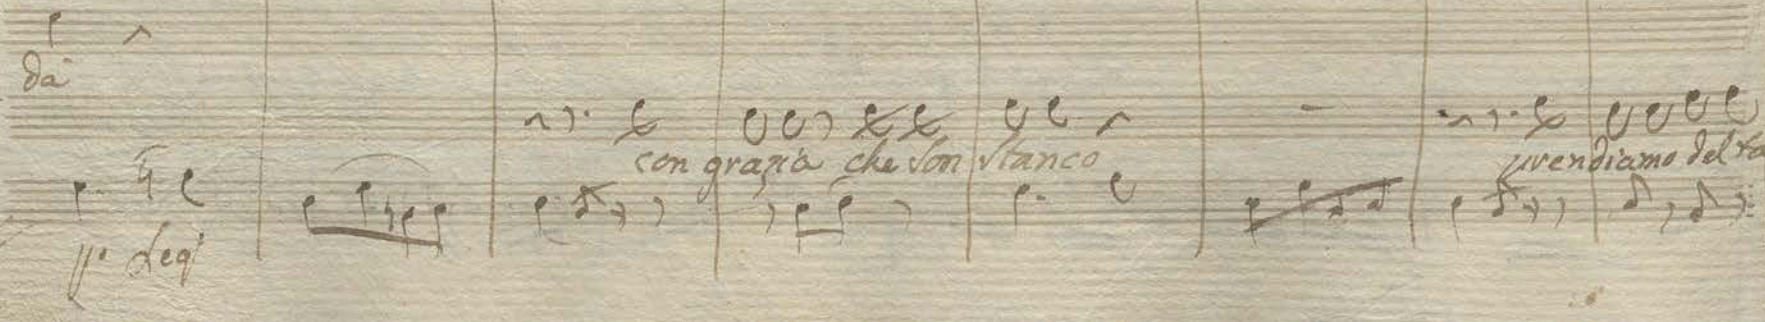 da
con grazia che son stanco prendiamo del ta
pº Legº